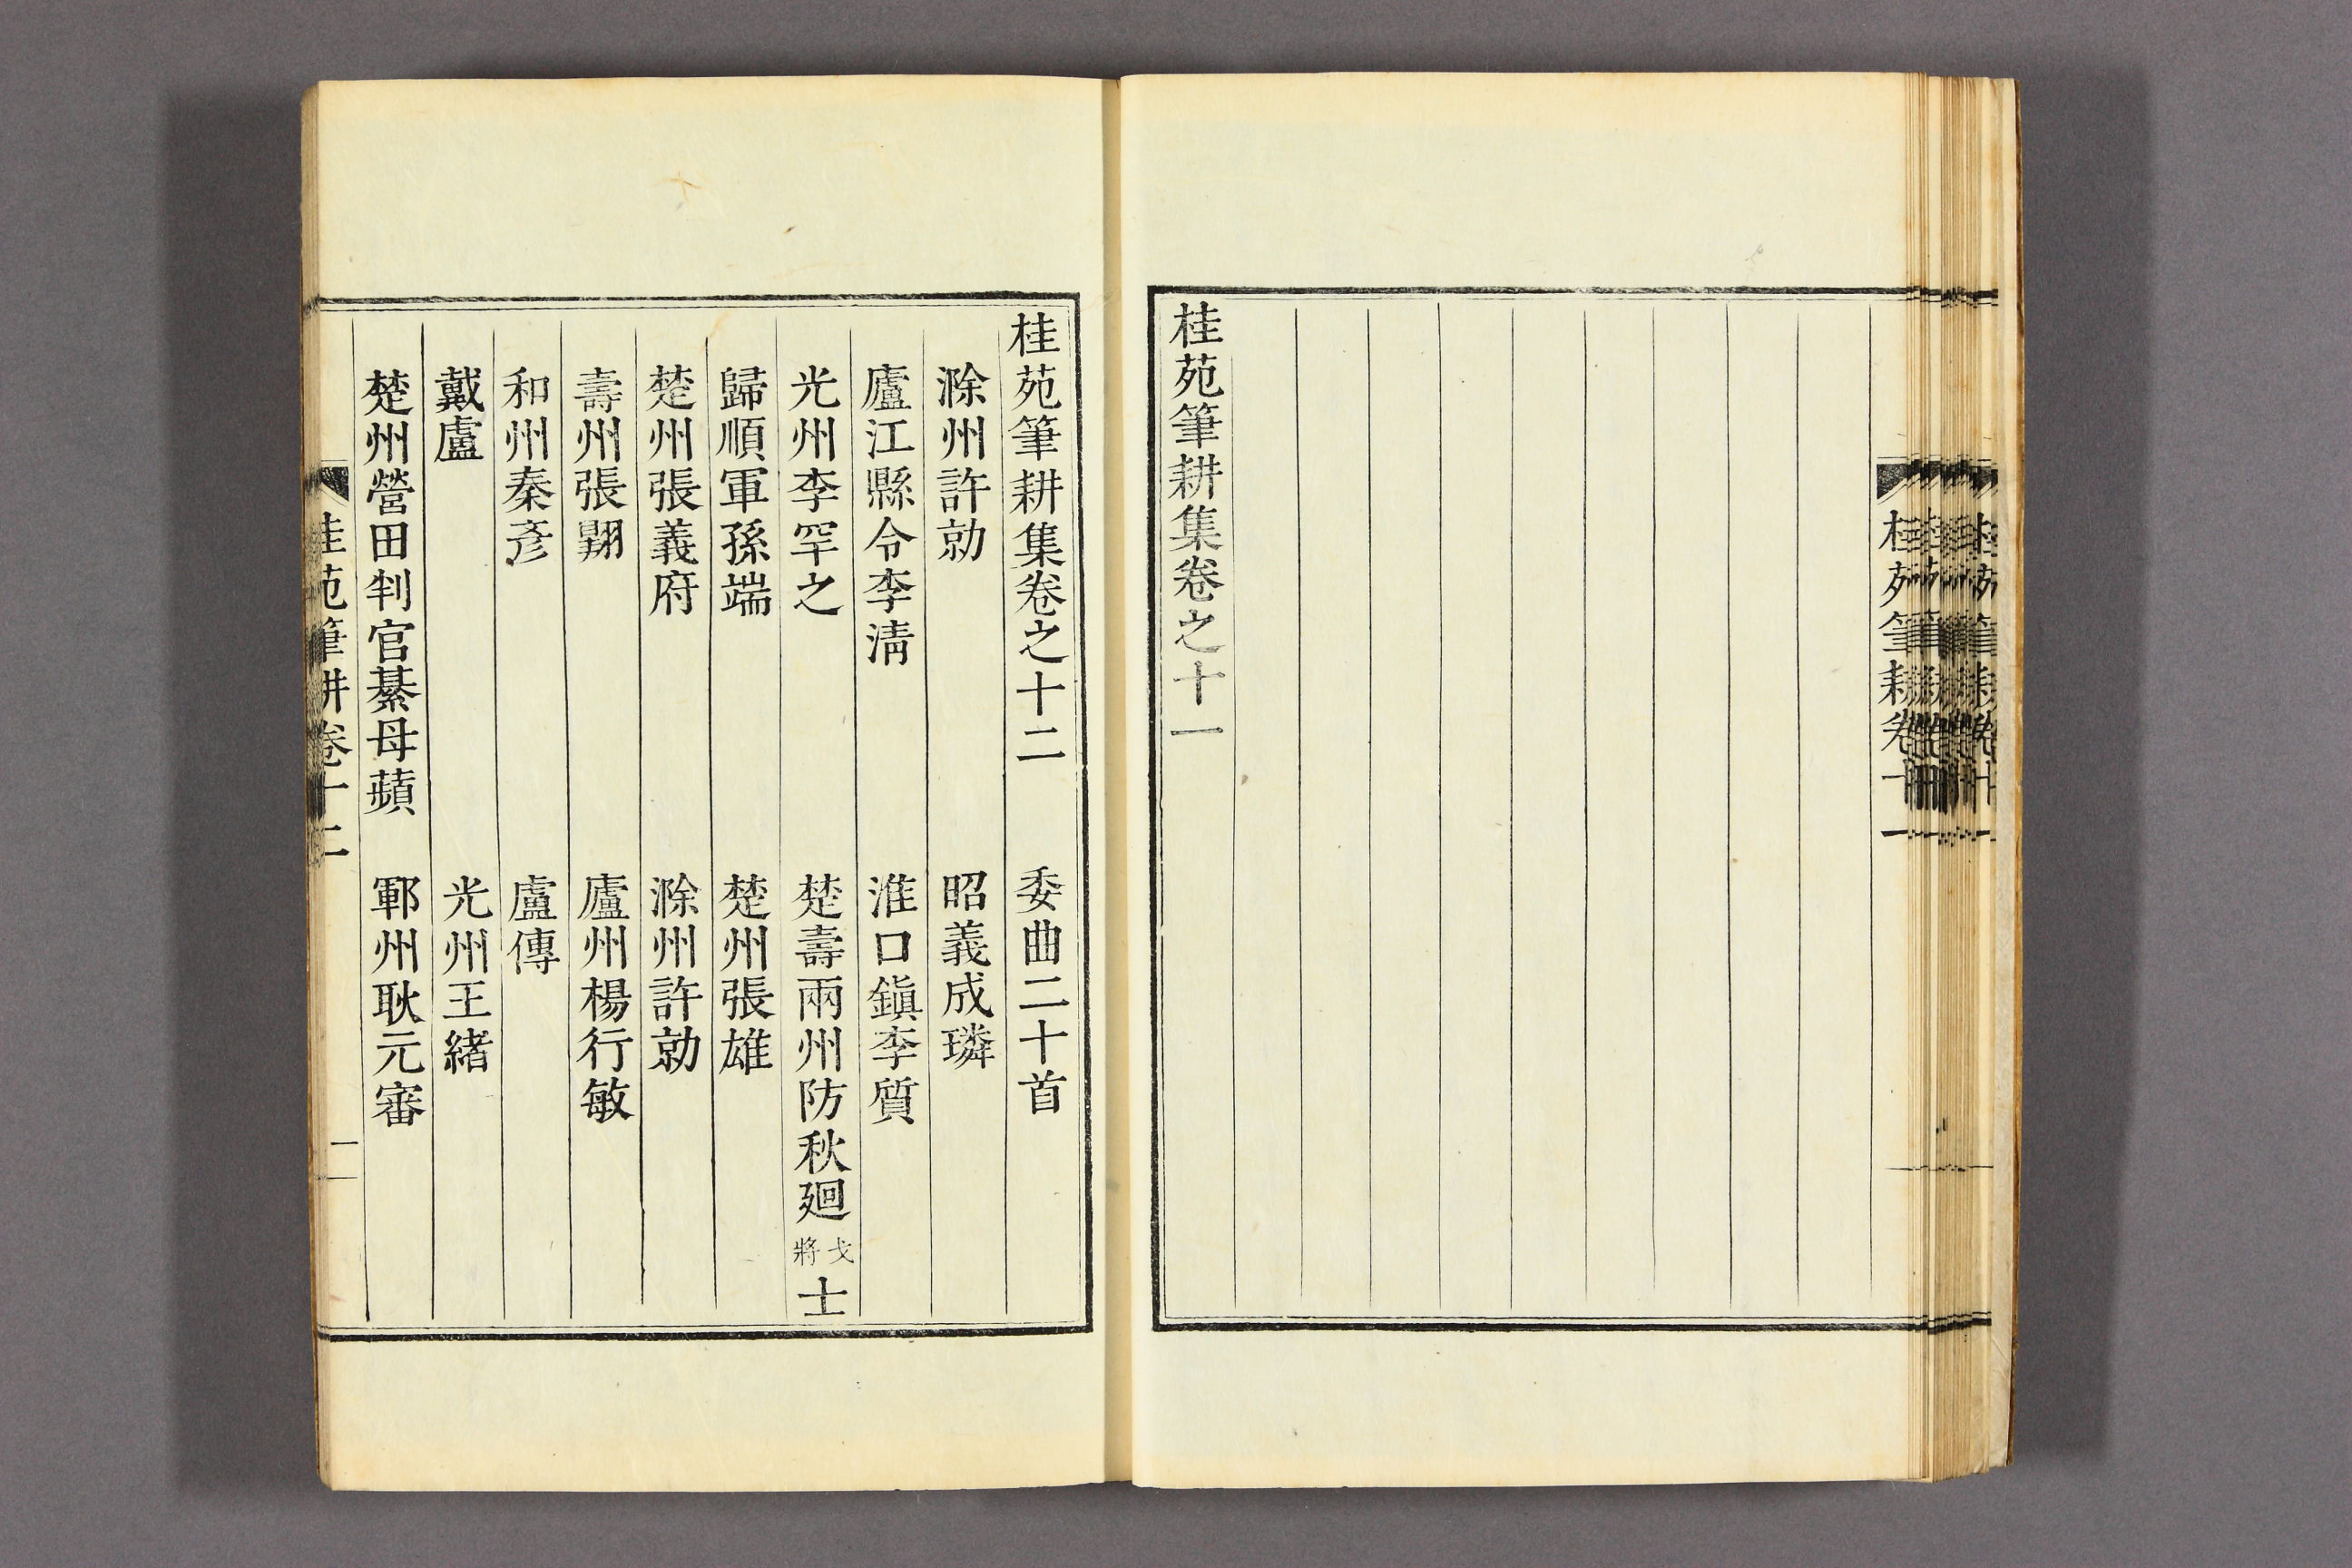 桂苑筆耕集卷之十一
桂苑筆耕集卷之十二　委曲二十首
滁州許勍　昭義成璘
廬江縣令李清　淮口鎭李質
光州李罕之　楚壽兩州防秋廻戈將士
歸順軍孫端　楚州張雄
楚州張義府　滁州許勍
壽州張翺　廬州楊行敏
和州秦彥　盧傳
戴盧　光州王緒
楚州營田判官綦母蘋　鄆州耿元審
桂苑筆耕卷十二　一